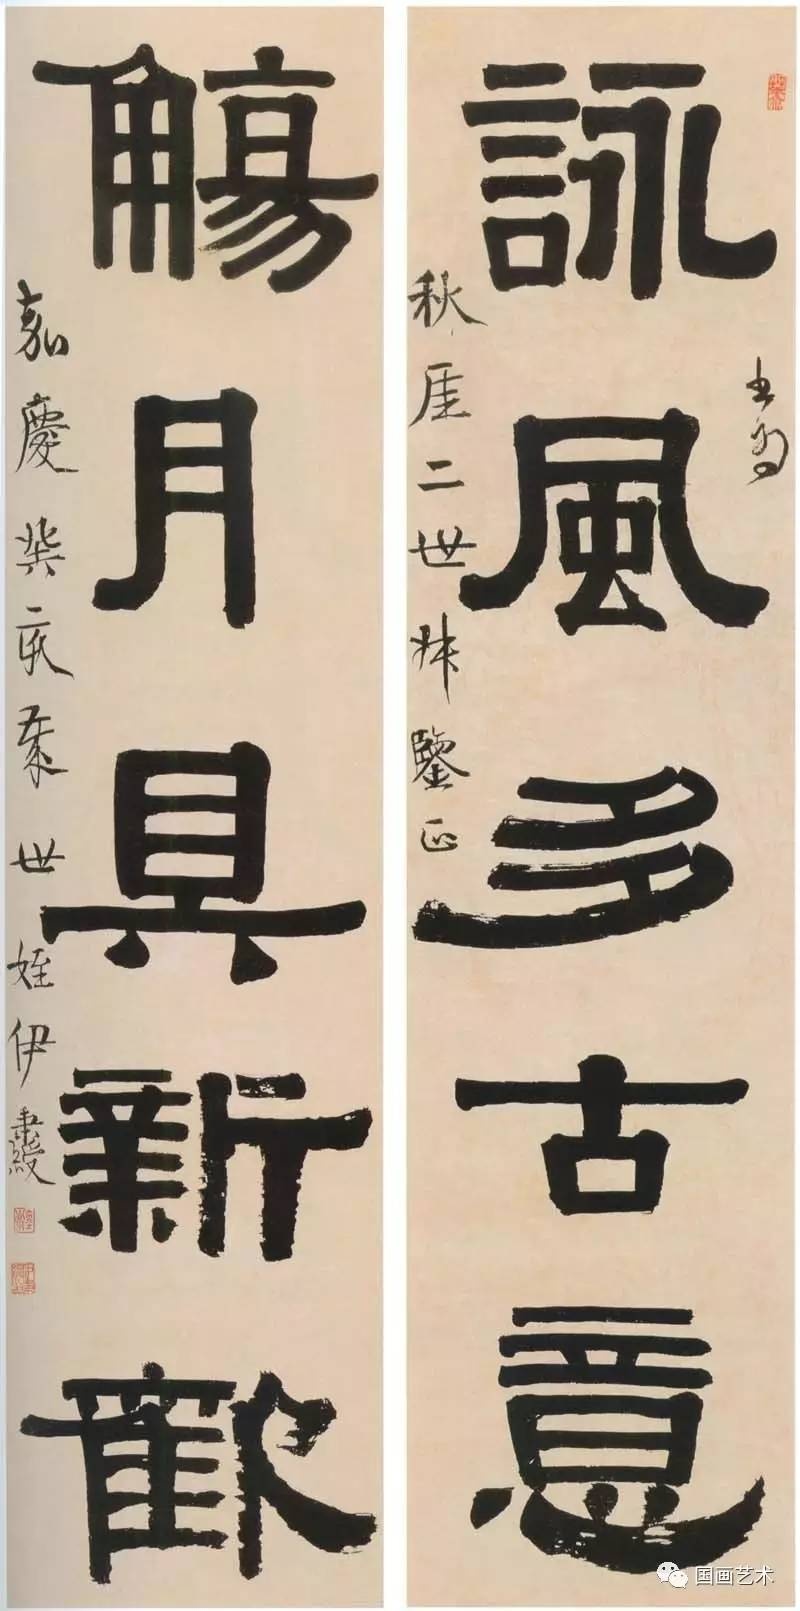 詠風多古意
書為
秋厓二世叔鑒正
觴月具新歡
嘉慶癸亥 世姪伊秉綬
国画艺术